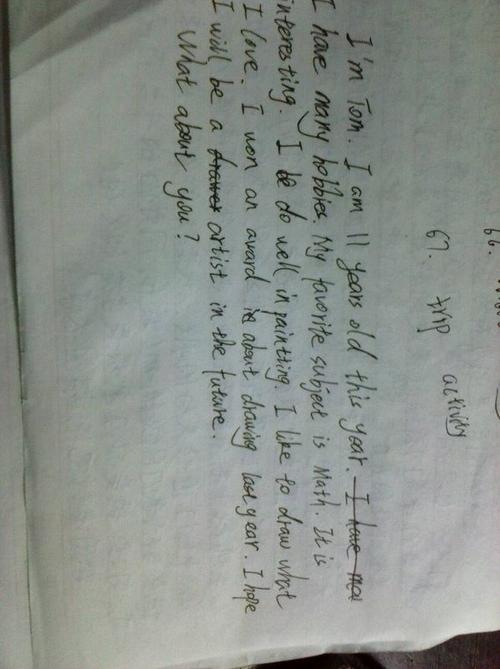 66.
67. trip activity
I'm Tom. I am 11 years old this year. I have ma
I have many hobbies. My favorite subject is Math. It is
interesting. I do well in painting. I like to draw what
I love. I won an award about drawing last year. I hope
I will be a drawer artist in the future.
What about you?